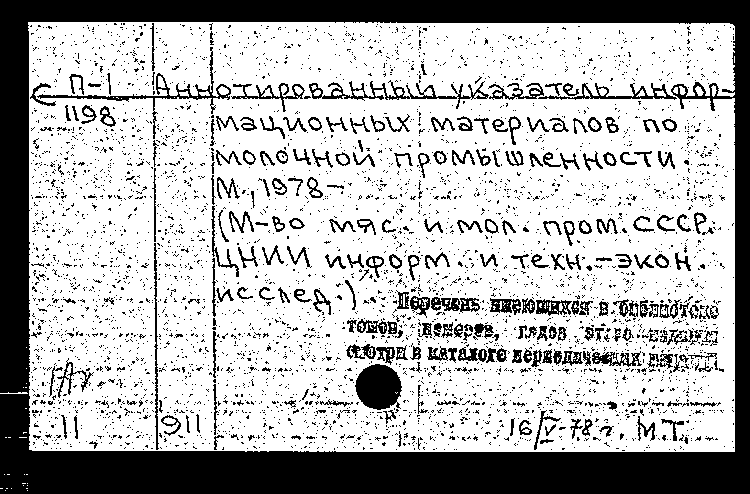 П-1 Аннотированный указатель инфор-
1198 мационных материалов по
молочной промышленности.
М., 1978-
(М-во мяс. и мол. пром. СССР.
ЦНИИ информ. и техн.-экон.
исслед.).
Перечень имеющихся в библиотеке
томов, номеров, годов этого издания
смотри в каталоге периодических изданий
11 911 16/V-78 г. М.Т.